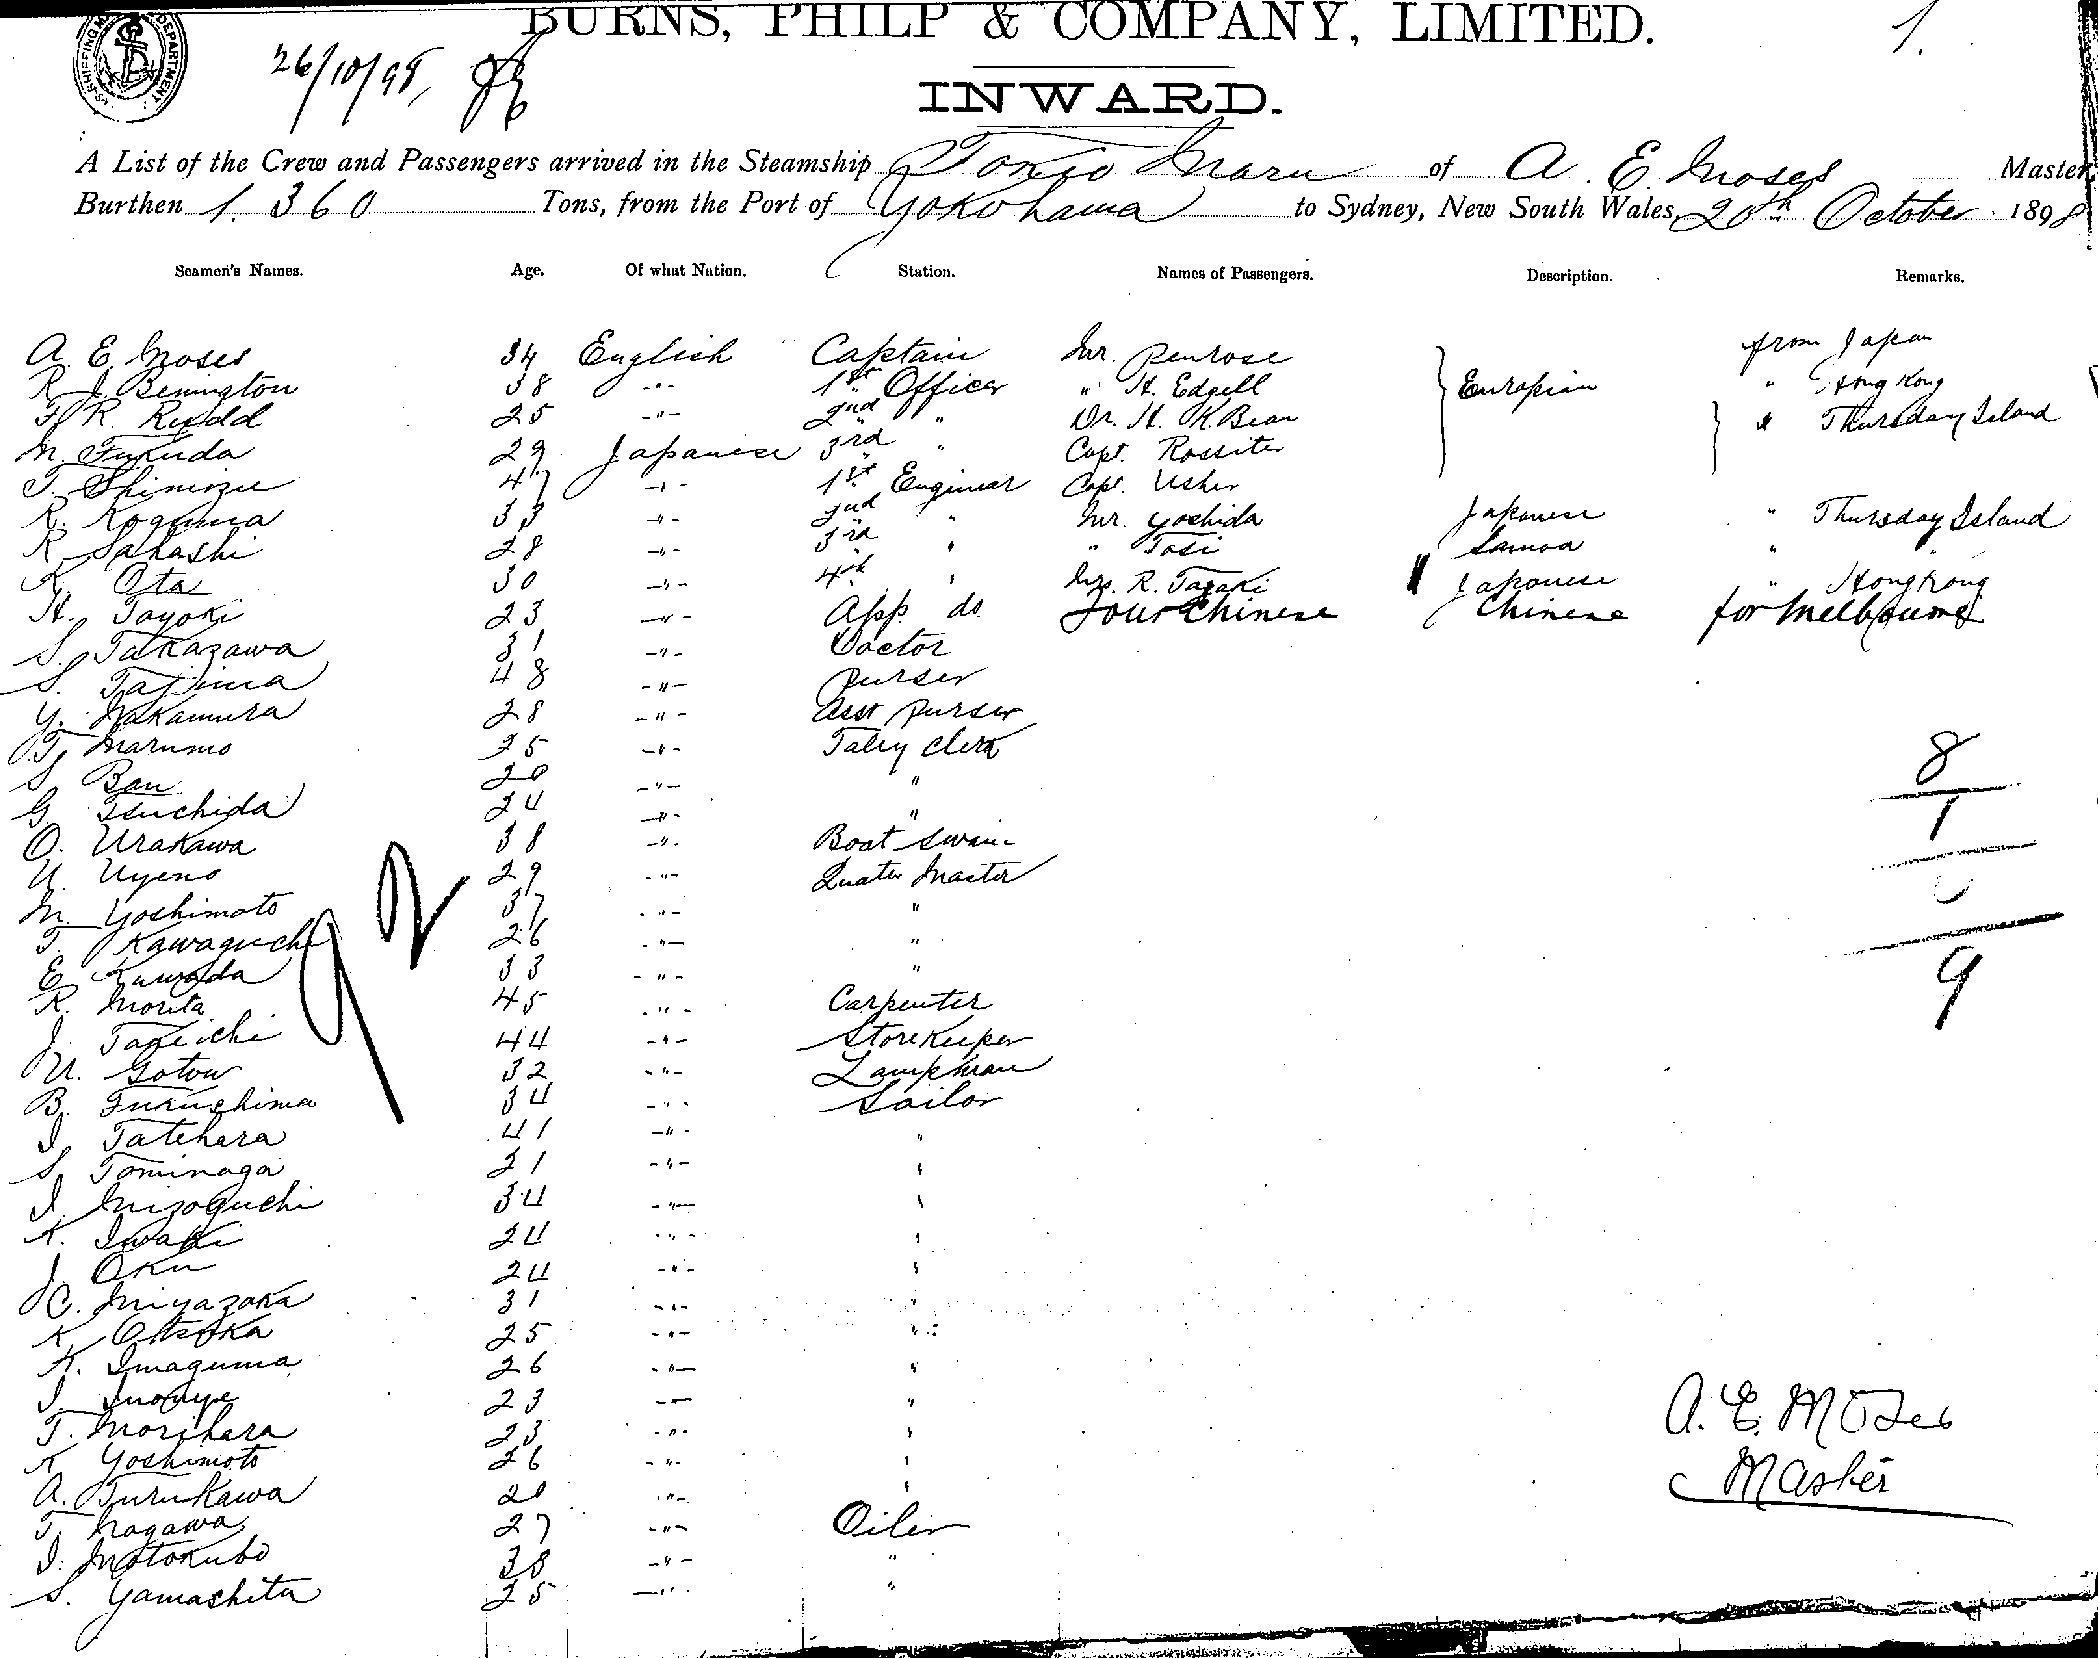 BURNS, PHILP & COMPANY, LIMITED. 1.
26/10/98
INWARD.
A List of the Crew and Passengers arrived in the Steamship Tokio Maru of A. E. Moses Master,
Burthen 1.360 Tons, from the Port of Yokohama to Sydney, New South Wales, 20th October 1898
Seamen's Names. Age. Of what Nation. Station. Names of Passengers. Description. Remarks.
A. E. Moses 34 English Captain Mr. Penrose from Japan
R. J. Bennington 38 -"- 1st Officer " H. Edgell Europian " Hong Kong
F. R. Rudd 25 -"- 2nd " Dr. H. K. Bean " Thursday Island
M. Fukuda 29 Japanese 3rd " Capt. Rossiter
T. Shimizu 47 -"- 1st Enginear Capt. Usher
R. Koguma 33 -"- 2nd " Mr. Yoshida Japanese " Thursday Island
K. Sakashi 28 -"- 3rd " " Tosi Samoa "
K. Ota 30 -"- 4th " Mrs. R. Tagaki Japanese " Hong Kong
H. Tayoki 23 -"- App. do. Four Chinese Chinese for Melbourne
S. Takazawa 31 -"- Doctor
S. Tajima 48 -"- Purser
Y. Nakamura 28 -"- Asst Purser
T. Marumo 25 -"- Taley Clerk
S. Ban 20 -"- "
G. Tsuchida 24 -"- "
O. Urakawa 38 -"- Boat swain
U. Uyeno 29 -"- Quater Master
M. Yoshimoto 37 -"- "
T. Kawaguchi 26 -"- "
E. Kuwada 33 -"- "
R. Morita 45 -"- Carpenter
J. Takeichi 44 -"- Storekeeper
U. Gotow 32 -"- Lampman
B. Fukushima 34 -"- Sailor
I. Tatehara 41 -"- "
S. Tominaga 21 -"- "
I. Mizoguchi 34 -"- "
K. Iwaki 24 -"- "
J. Oku 24 -"- "
C. Miyazaka 31 -"- "
K. Otsuka 25 -"- "
K. Imaguma 26 -"- "
I. Inouye 23 -"- "
T. Morihara 23 -"- "
K. Yoshimoto 26 -"- "
A. Furukawa 20 -"- "
T. Nagawa 27 -"- Oiler
I. Motokubo 38 -"- "
S. Yamashita 25 -"- "
92
8
1
9
A. E. Moses
Master